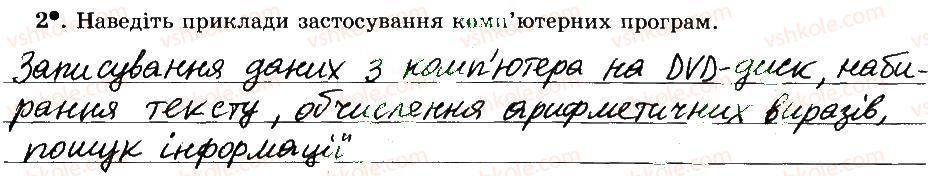 2•. Наведіть приклади застосування комп’ютерних програм.
Записування даних з комп'ютера на DVD-диск, наби-
рання тексту, обчислення арифметичних виразів,
пошук інформації